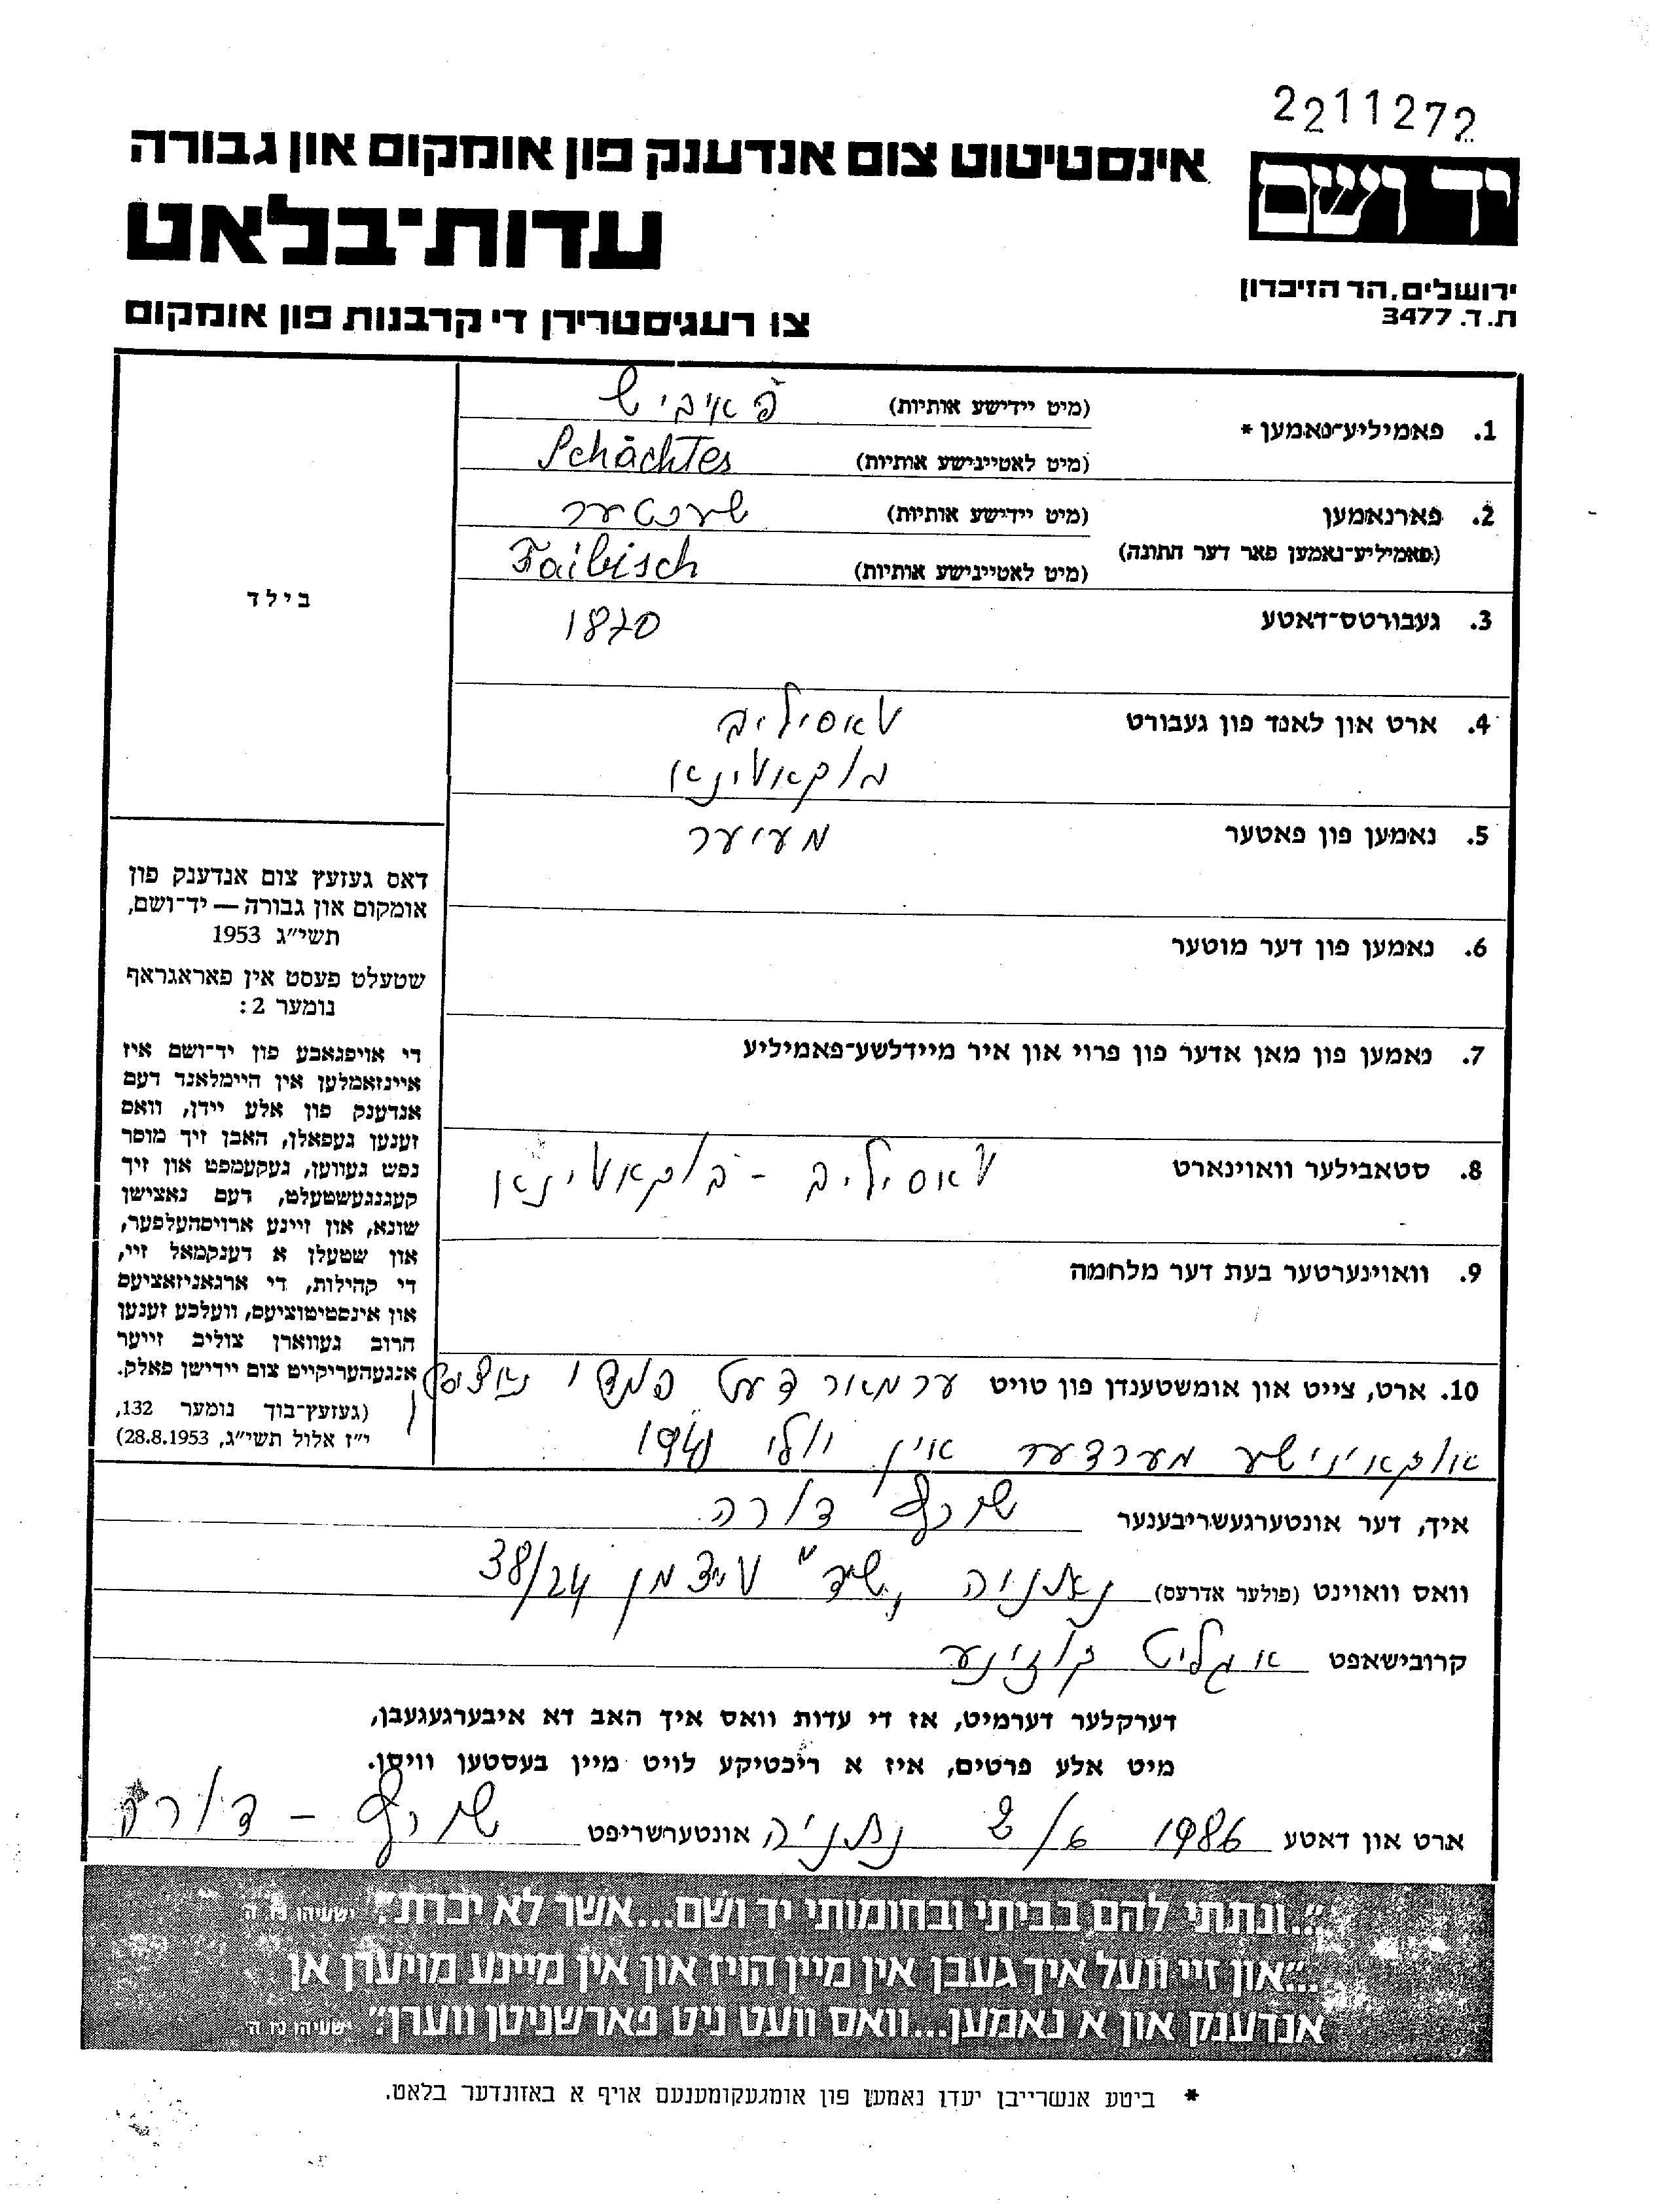 2211272
אינסטיטוט צום אנדענק פון אומקום און גבורה
יד ושם
עדות־בלאט
ירושלים, הר הזיכרון
ת.ד. 3477
צו רעגיסטרירן די קרבנות פון אומקום
1. פאמיליע־נאמען * (מיט יידישע אותיות) פאייביש
(מיט לאטיינישע אותיות) Schächter
2. פארנאמען (מיט יידישע אותיות) שעכטער
(פאמיליע־נאמען פאר דער חתונה) (מיט לאטיינישע אותיות) Faibisch
3. געבורטס־דאטע 1870
4. ארט און לאנד פון געבורט וואסיליב
בוקאווינא
5. נאמען פון פאטער מעיער
6. נאמען פון דער מוטער
7. נאמען פון מאן אדער פון פרוי און איר מיידלשע־פאמיליע
8. סטאבילער וואוינארט וואסיליב - בוקאווינא
9. וואוינערטער בעת דער מלחמה
10. ארט, צייט און אומשטענדן פון טויט ערמארדעט
מערדער אין יולי 1941
בילד
דאס געזעץ צום אנדענק פון
אומקום און גבורה — יד־ושם,
תשי״ג 1953
שטעלט פעסט אין פאראגראף
נומער 2:
די אויפגאבע פון יד־ושם איז
איינזאמלען אין היימלאנד דעם
אנדענק פון אלע יידן, וואס
זענען געפאלן, האבן זיך מוסר
נפש געווען, געקעמפט און זיך
קעגנגעשטעלט, דעם נאצישן
שונא, און זיינע ארויסהעלפער,
און שטעלן א דענקמאל זיי,
די קהילות, די ארגאניזאציעס
און אינסטיטוציעס, וועלכע זענען
חרוב געווארן צוליב זייער
אנגעהעריקייט צום יידישן פאלק.
(געזעץ־בוך נומער 132,
י״ז אלול תשי״ג, 28.8.1953)
איך, דער אונטערגעשריבענער שורף דורה
וואס וואוינט (פולער אדרעס) נאתניה, שד״ ויצמן 38/24
קרובישאפט קוזינע
דערקלער דערמיט, אז די עדות וואס איך האב דא איבערגעגעבן,
מיט אלע פרטים, איז א ריכטיקע לויט מיין בעסטען וויסן.
ארט און דאטע 1986 נתניה אונטערשריפט שורף - דורה
״...ונתתי להם בביתי ובחומותי יד ושם...אשר לא יכרת״. ישעיהו נו ה
...״און זיי וועל איך געבן אין מיין הויז און אין מיינע מויערן אן
אנדענק און א נאמען...וואס וועט ניט פארשניטן ווערן״. ישעיהו נו ה
* ביטע אנשרייבן יעדן נאמען פון אומגעקומענעם אויף א באזונדער בלאט.